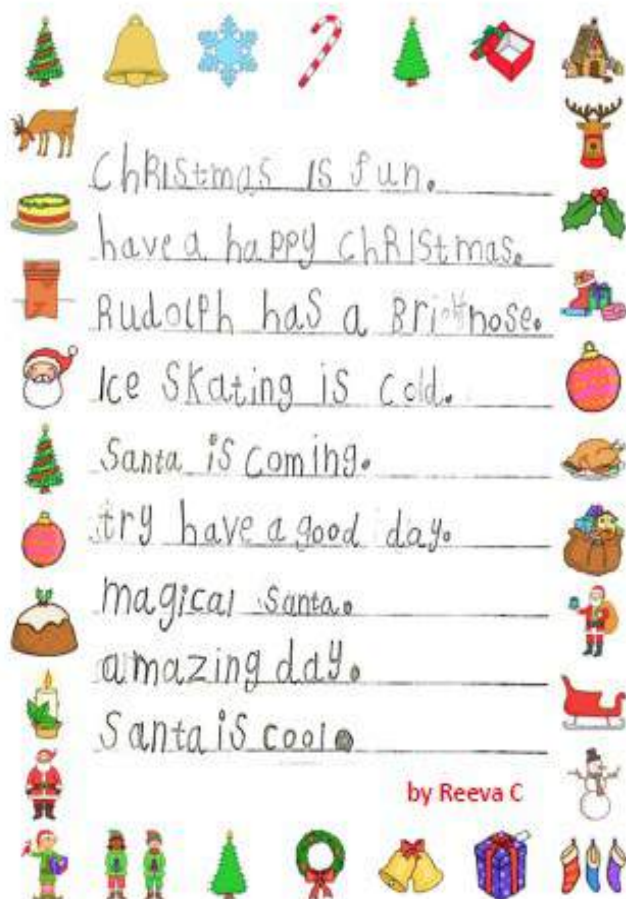 ChRIStmas IS fun.
have a happy ChRIStmas.
RudolPh has a Bri nose.
Ice SKating is cold.
Santa is coming.
try have a good day.
magical Santa.
amazing day.
Santa is cool.
by Reeva C